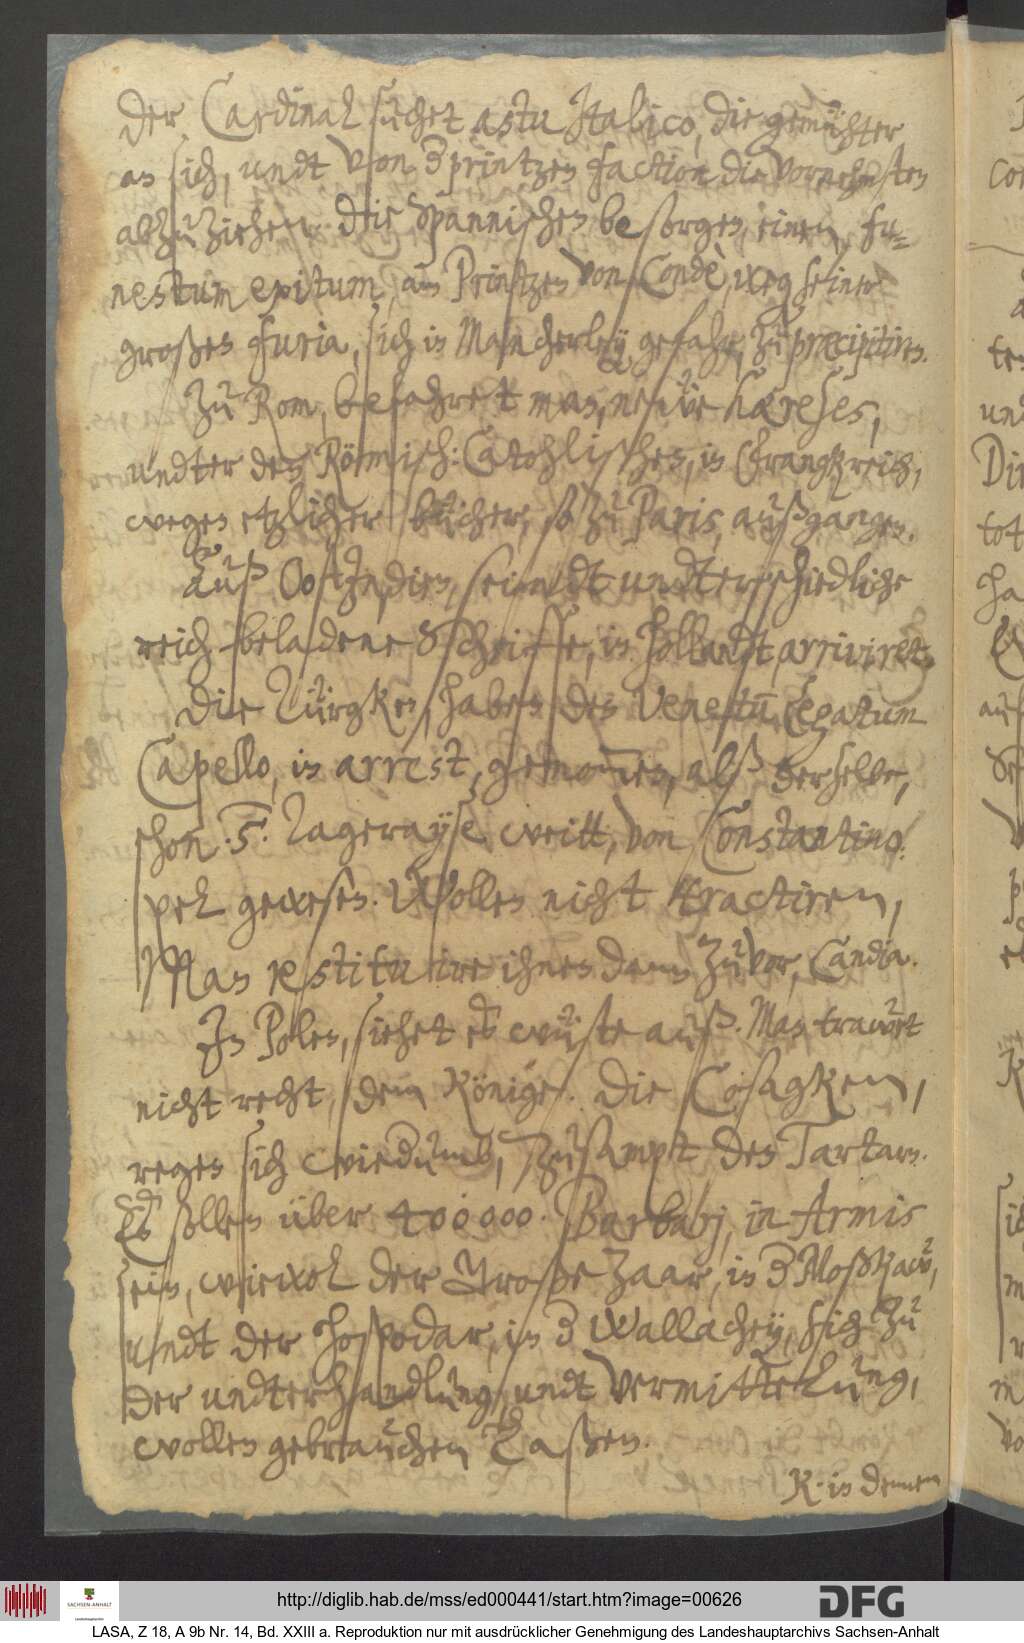 der Cardinal suchet astu Italico, die gemühter
an sich, undt von 3 printzen faction die vornehmsten
abzuziehen. Die Spannischen besorgen, einen, fu-
nestum exitum, am Printzen von Condè, weg seiner
großen furia, sich in Mancherley gefahr, zu præcipitiren.
Zu Rom, befahret man, neuwe hæreses,
undter den Römisch: Catohlischen, in Frangkreich,
wegen etzlicher bücher, so zu Paris, außgangen.
Auß OostIndien, seindt undterschiedliche
reich beladene Scheiffe, in Hollandt arriviret.
Die Türgken, haben den Venetū. Legatum
Capello, in arrest, genom̄en, alß derselbe,
schon .5. Tagerayse weitt, von Constantino-
pel gewesen. Wollen nicht tractiren,
Man restituire ihnen dann zuvor, Candia.
In Polen, siehet es wüste auß. Man trawet
nicht recht, dem Könige. Die Cosagken,
regen sich wiedumb, zusampt den Tartarn.
Es sollen über 400000. Barbarj, in Armis
sein, wiewol der Große Zaar, in 3 Moßkaw,
undt der Hospodar, in 3 Wallachey, sich zu
der undterhandlung, undt vermittelung,
wollen gebrauchen laßen.
K. in dennen
http://diglib.hab.de/mss/ed000441/start.htm?image=00626
DFG
SACHSEN-ANHALT
Landeshauptarchiv
LASA, Z 18, A 9b Nr. 14, Bd. XXIII a. Reproduktion nur mit ausdrücklicher Genehmigung des Landeshauptarchivs Sachsen-Anhalt